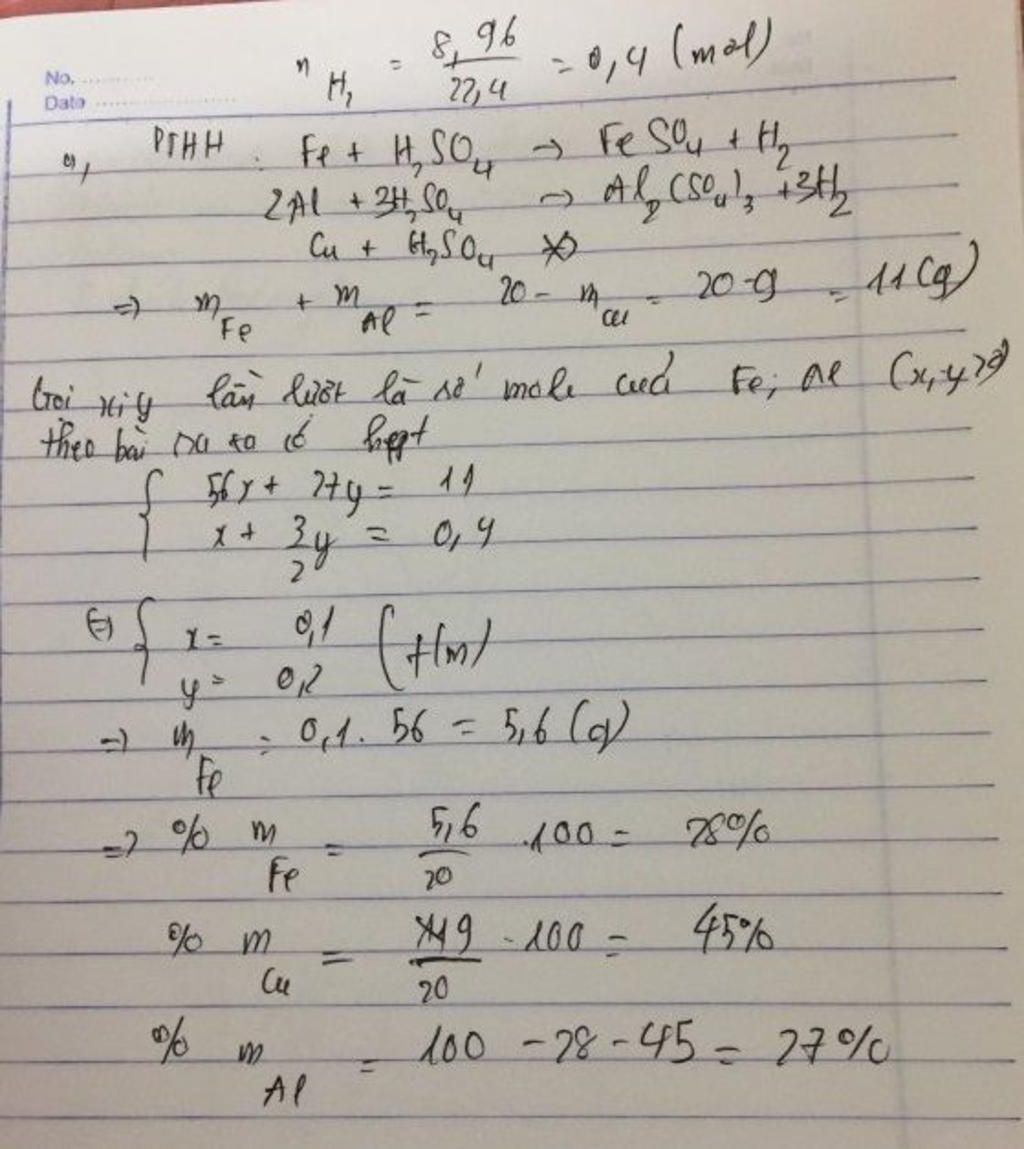 No. ............
Date ........................
n H₂ = 8,96/22,4 = 0,4 (mol)
a, PTHH : Fe + H₂SO₄ → FeSO₄ + H₂
2Al + 3H₂SO₄ → Al₂(SO₄)₃ + 3H₂
Cu + H₂SO₄ ↛
=> m Fe + m Al = 20 - m Cu = 20 - 9 = 11 (g)
Gọi x, y lần lượt là số mol của Fe, Al (x, y > 0)
theo bài ra ta có hệpt
{ 56x + 27y = 11
x + 3/2 y = 0,4
(=) { x = 0,1 (t/m)
y = 0,2
=> m Fe = 0,1 . 56 = 5,6 (g)
=> % m Fe = 5,6/20 . 100 = 28%
% m Cu = 9/20 . 100 = 45%
% m Al = 100 - 28 - 45 = 27%